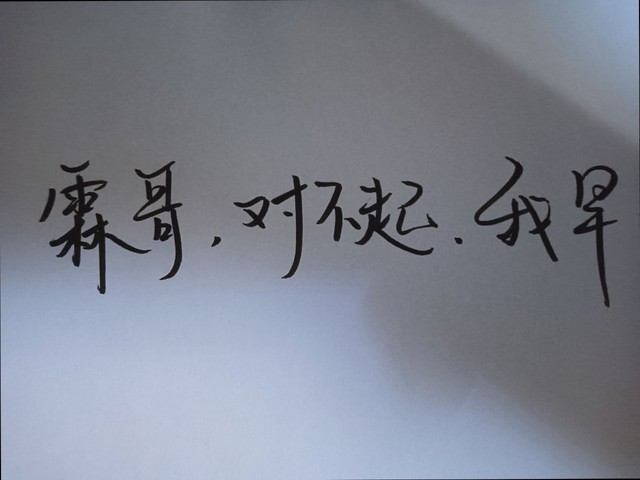 霖哥,对不起.我早